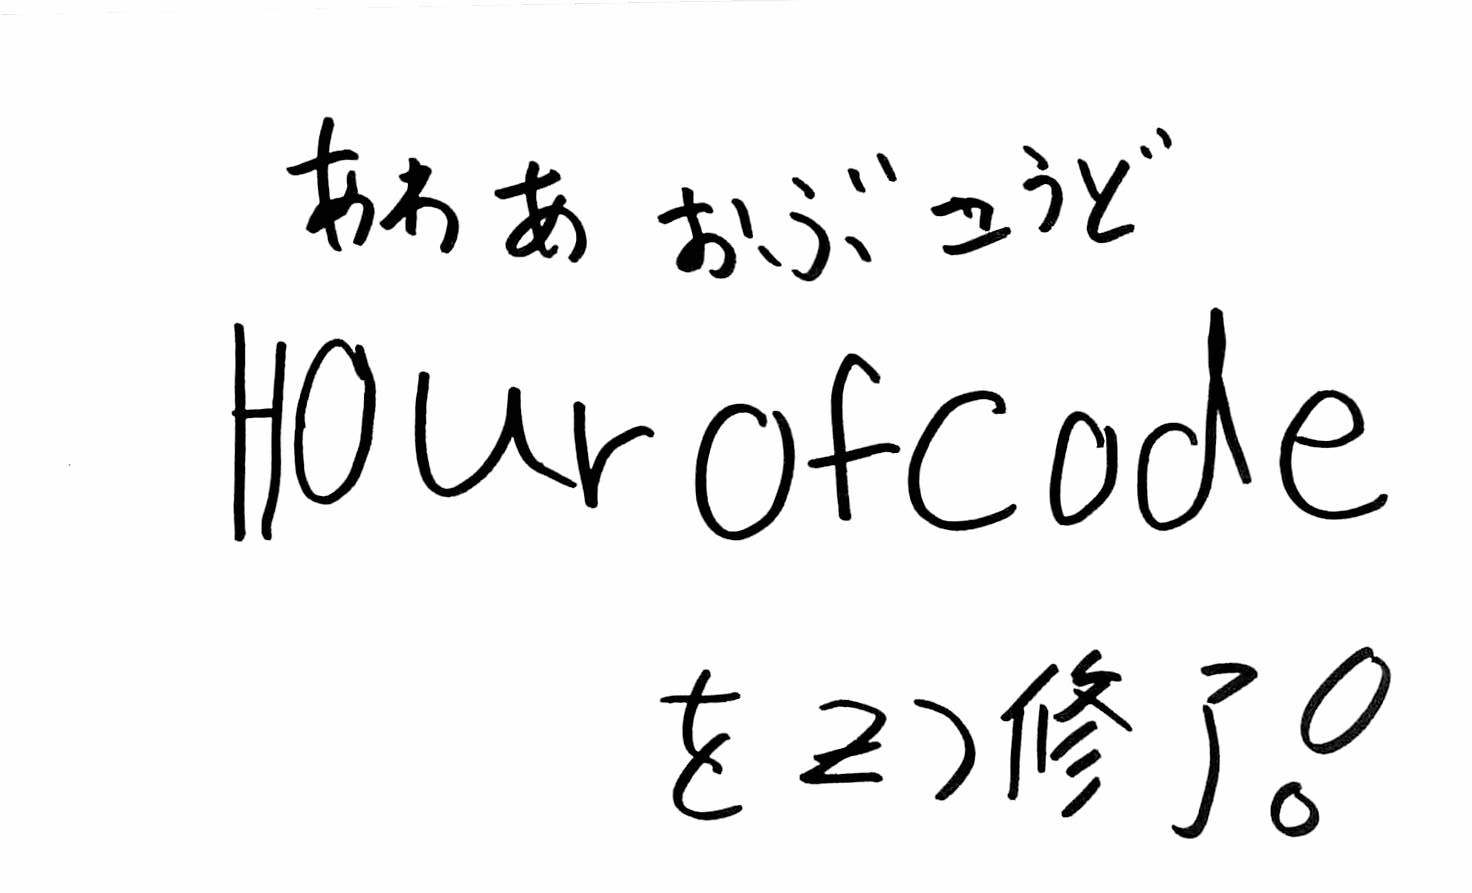 あわあ おぶ こうど
Hour of Code
を2つ修了!